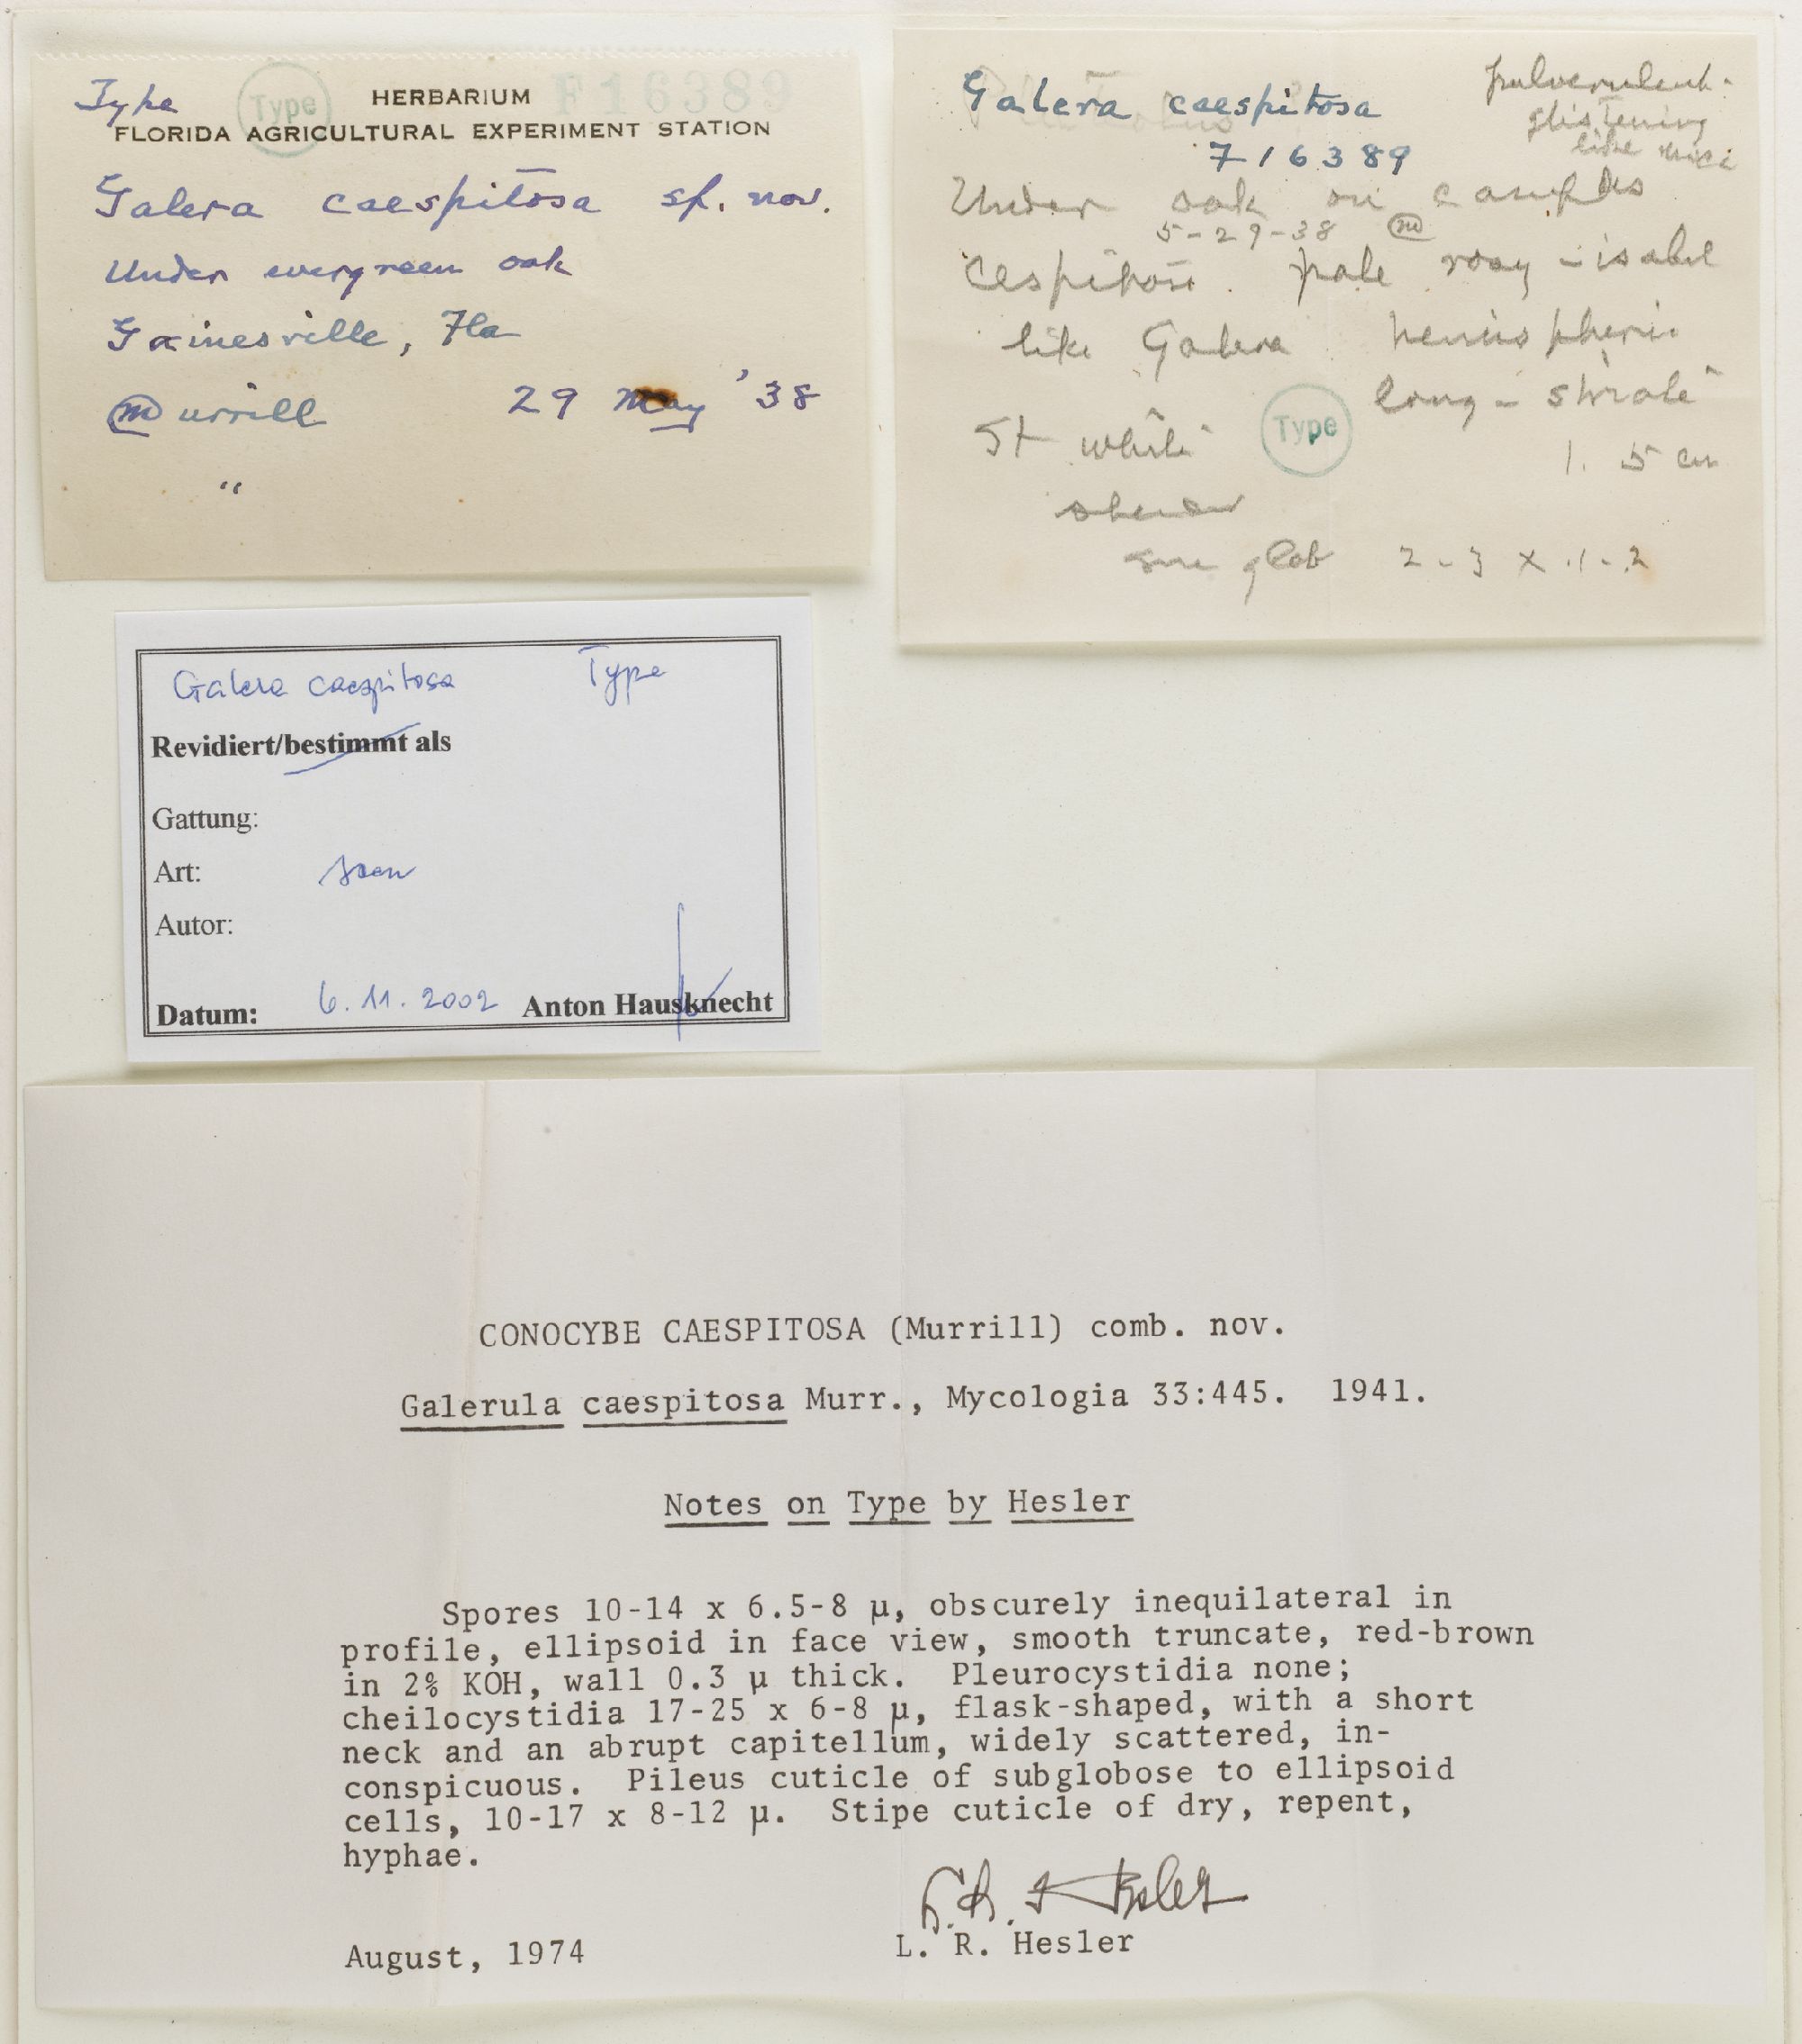 Type
Type
HERBARIUM
F16389
FLORIDA AGRICULTURAL EXPERIMENT STATION
Galera caespitosa sp. nov.
Under evergreen oak
Gainesville, Fla
Murrill 29 May '38
"
Galera caespitosa
F16389
pulverulent-
glistening
like mica
Under oak on campus
5-29-38 m
Cespitose pale rosy-isabel
like Galera hemispheric
long-striate
St white
Type
1.5 cm
glob 2-3 x .1-.2
Galera caespitosa Type
Revidiert/bestimmt als
Gattung:
Art: seen
Autor:
Datum: 6.11.2002 Anton Hausknecht
CONOCYBE CAESPITOSA (Murrill) comb. nov.
Galerula caespitosa Murr., Mycologia 33:445. 1941.
Notes on Type by Hesler
Spores 10-14 x 6.5-8 µ, obscurely inequilateral in
profile, ellipsoid in face view, smooth truncate, red-brown
in 2% KOH, wall 0.3 µ thick. Pleurocystidia none;
cheilocystidia 17-25 x 6-8 µ, flask-shaped, with a short
neck and an abrupt capitellum, widely scattered, in-
conspicuous. Pileus cuticle of subglobose to ellipsoid
cells, 10-17 x 8-12 µ. Stipe cuticle of dry, repent,
hyphae.
L. R. Hesler
L. R. Hesler
August, 1974